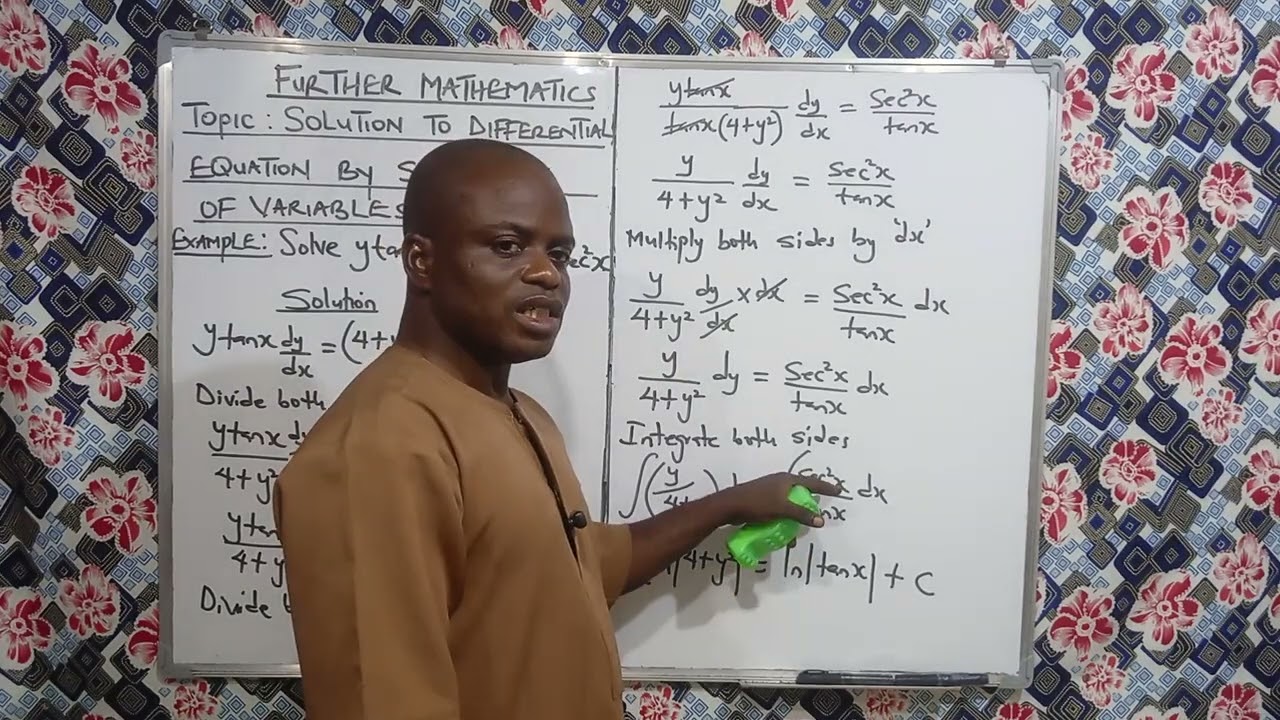 FURTHER MATHEMATICS
TOPIC: SOLUTION TO DIFFERENTIAL
EQUATION BY S
OF VARIABLES
EXAMPLE: Solve ytan ec²x
Solution
ytanx dy/dx = (4+y
Divide both
ytanx d
4+y²
ytan
4+y
Divide b
ytanx/tanx(4+y²) dy/dx = Sec²x/tanx
y/4+y² dy/dx = Sec²x/tanx
Multiply both sides by 'dx'
y/4+y² dy/dx × dx = Sec²x/tanx dx
y/4+y² dy = Sec²x/tanx dx
Integrate both sides
∫(y/4+ ) Sec²x/anx dx
|4+y²| = ln|tanx| + C